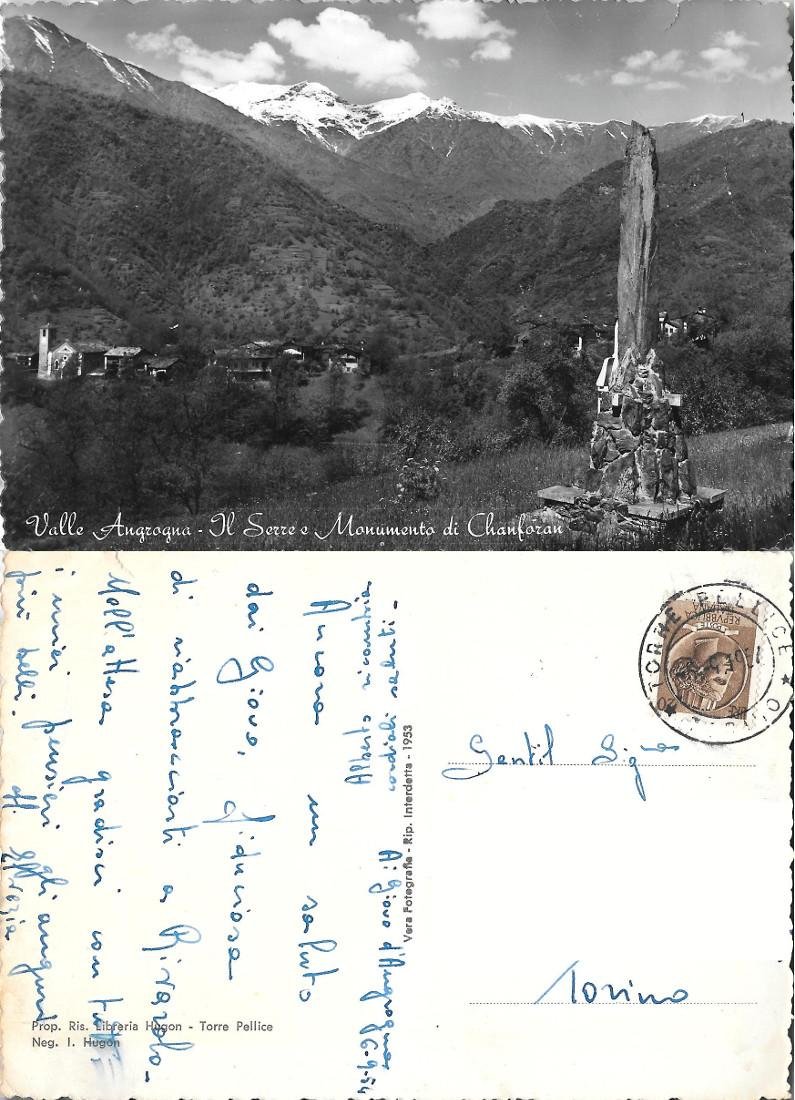 Valle Angrogna - Il Serre e Monumento di Chanforan
Ai Giovo d'Angrogna 6-9-54
Ancora un saluto
dai Giovo, fiduciosa
di riabbracciarti a Rivarolo-
Nell'attesa gradisci con tutti
i miei pensieri gli auguri
più belli. aff.
cordiali saluti-
Vera Fotografia - Rip. Interdetta - 1953
Prop. Ris. Libreria Hugon - Torre Pellice
Neg. I. Hugon
TORRE PELLICE
REPVBBLICA
20
LIRE
Gentil Sig.
Torino